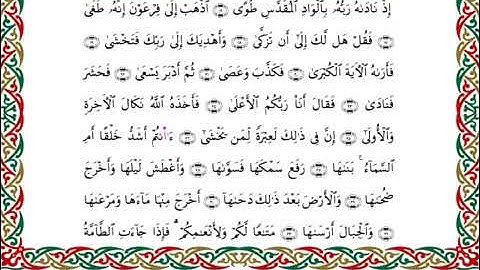 إِذْ نَادَىٰهُ رَبُّهُۥ بِٱلْوَادِ ٱلْمُقَدَّسِ طُوًى ۝ ٱذْهَبْ إِلَىٰ فِرْعَوْنَ إِنَّهُۥ طَغَىٰ
۝ فَقُلْ هَل لَّكَ إِلَىٰٓ أَن تَزَكَّىٰ ۝ وَأَهْدِيَكَ إِلَىٰ رَبِّكَ فَتَخْشَىٰ ۝
فَأَرَىٰهُ ٱلْءَايَةَ ٱلْكُبْرَىٰ ۝ فَكَذَّبَ وَعَصَىٰ ۝ ثُمَّ أَدْبَرَ يَسْعَىٰ ۝ فَحَشَرَ
فَنَادَىٰ ۝ فَقَالَ أَنَا۠ رَبُّكُمُ ٱلْأَعْلَىٰ ۝ فَأَخَذَهُ ٱللَّهُ نَكَالَ ٱلْءَاخِرَةِ
وَٱلْأُولَىٰٓ ۝ إِنَّ فِى ذَٰلِكَ لَعِبْرَةً لِّمَن يَخْشَىٰٓ ۝ ءَأَنتُمْ أَشَدُّ خَلْقًا أَمِ
ٱلسَّمَآءُ ۚ بَنَىٰهَا ۝ رَفَعَ سَمْكَهَا فَسَوَّىٰهَا ۝ وَأَغْطَشَ لَيْلَهَا وَأَخْرَجَ
ضُحَىٰهَا ۝ وَٱلْأَرْضَ بَعْدَ ذَٰلِكَ دَحَىٰهَآ ۝ أَخْرَجَ مِنْهَا مَآءَهَا وَمَرْعَىٰهَا
۝ وَٱلْجِبَالَ أَرْسَىٰهَا ۝ مَتَٰعًا لَّكُمْ وَلِأَنْعَٰمِكُمْ ۝ فَإِذَا جَآءَتِ ٱلطَّآمَّةُ